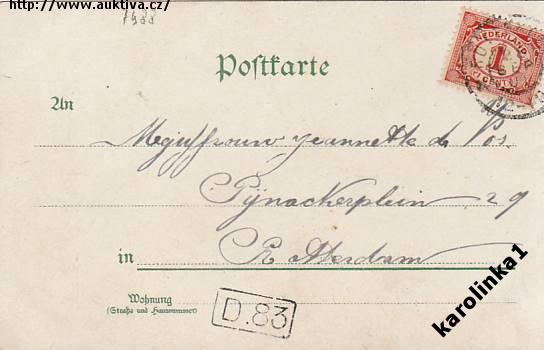 http://www.auktiva.cz/
Postkarte
NEDERLAND
1
CENT
An
Mejuffrouw Jeannette de Vos.
Pijnackerplein 29
in
Rotterdam
Wohnung
(Straße und Hausnummer)
D.83
karolinka1